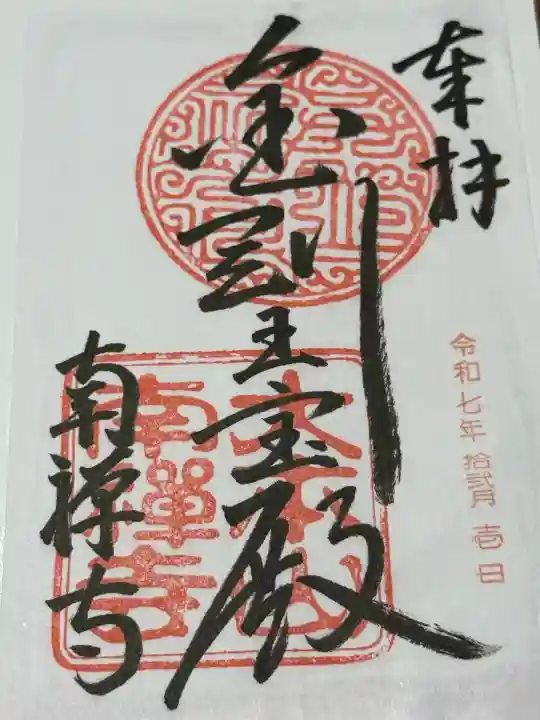 奉拝
令和七年 拾弐月 壱日
金剛王宝殿
南禅寺
大本山
南禅寺